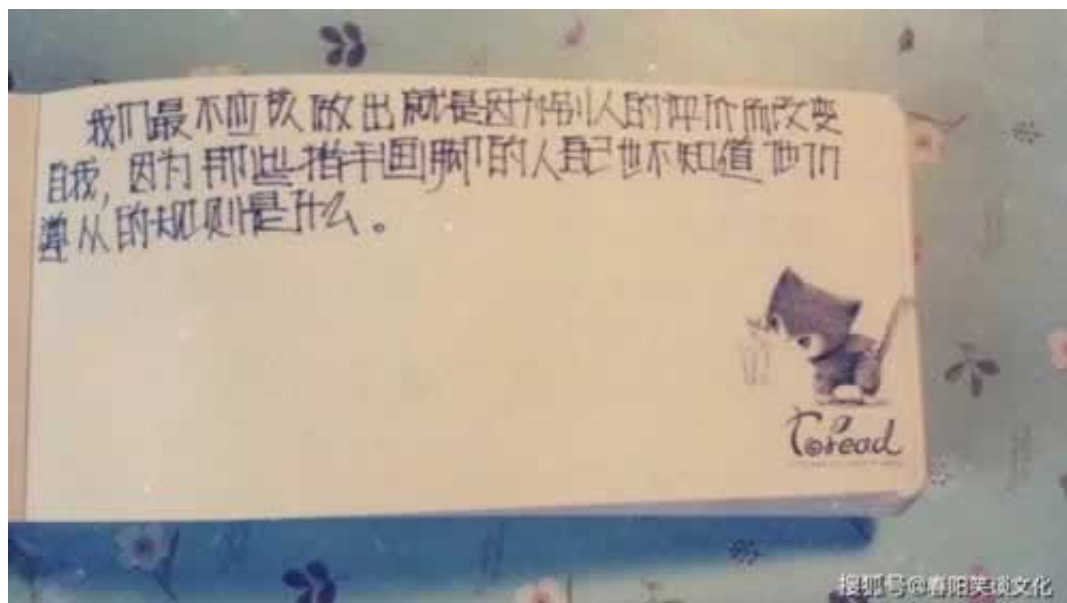 我们最不应该做出就是因为别人的评价而改变
自我,因为那些指手画脚的人自己也不知道他们
遵从的规则是什么。
Coread
搜狐号@春阳笑谈文化